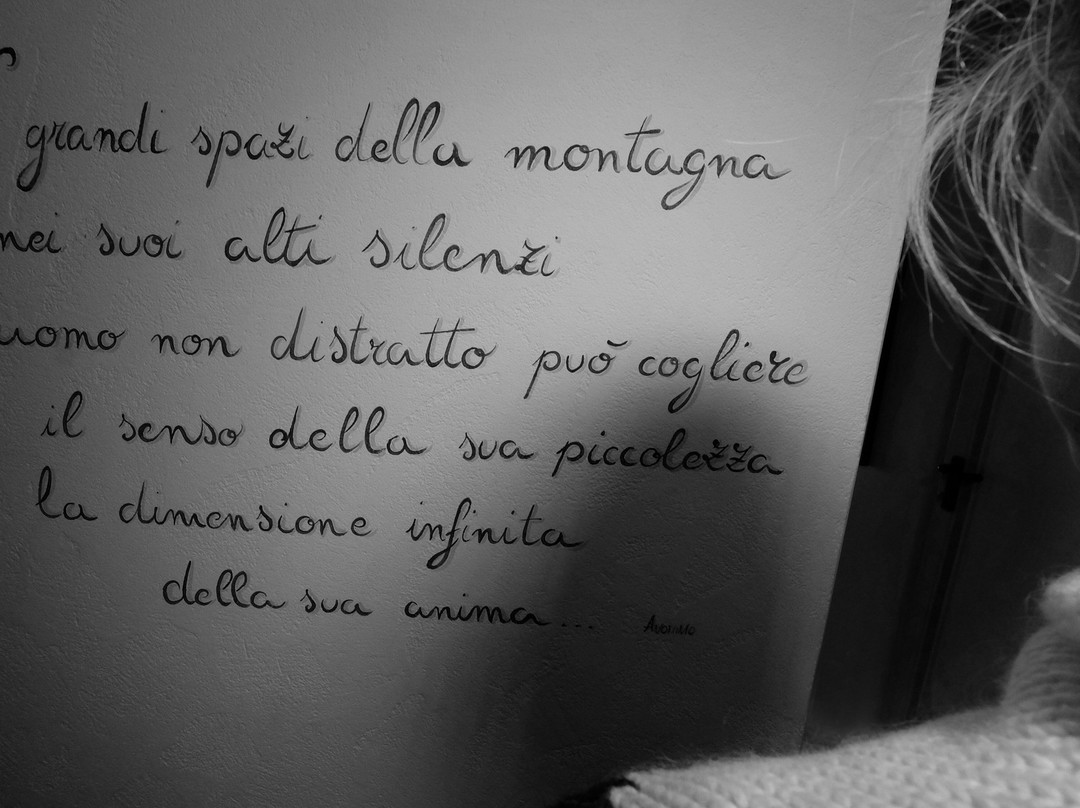 grandi spazi della montagna
nei suoi alti silenzi
uomo non distratto può cogliere
il senso della sua piccolezza
la dimensione infinita
della sua anima...